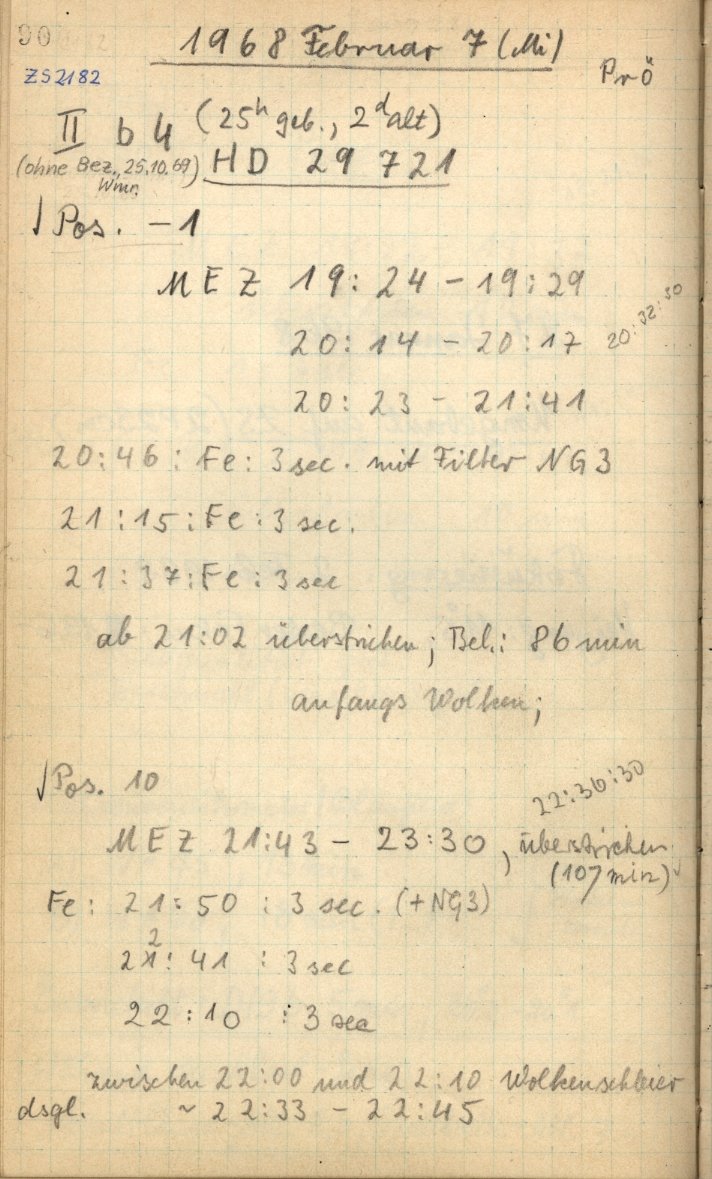 90
1968 Februar 7 (Mi)
ZS2182
Prö
II b 4 (25h geb., 2d alt)
(ohne Bez., 25.10.69) HD 29721
Wmr.
√ Pos. -1
MEZ 19:24 - 19:29
20:14 - 20:17 20:32:30
20:23 - 21:41
20:46 : Fe: 3 sec. mit Filter NG3
21:15 : Fe : 3 sec.
21:37 : Fe : 3 sec
ab 21:02 überstrichen; Bel.: 86 min
anfangs Wolken;
√ Pos. 10
22:36:30
MEZ 21:43 - 23:30, überstrichen
(107 min)
Fe: 21:50 : 3 sec. (+NG3)
22:41 : 3 sec
22:10 : 3 sec
zwischen 22:00 und 22:10 Wolkenschleier
dsgl. ~ 22:33 - 22:45